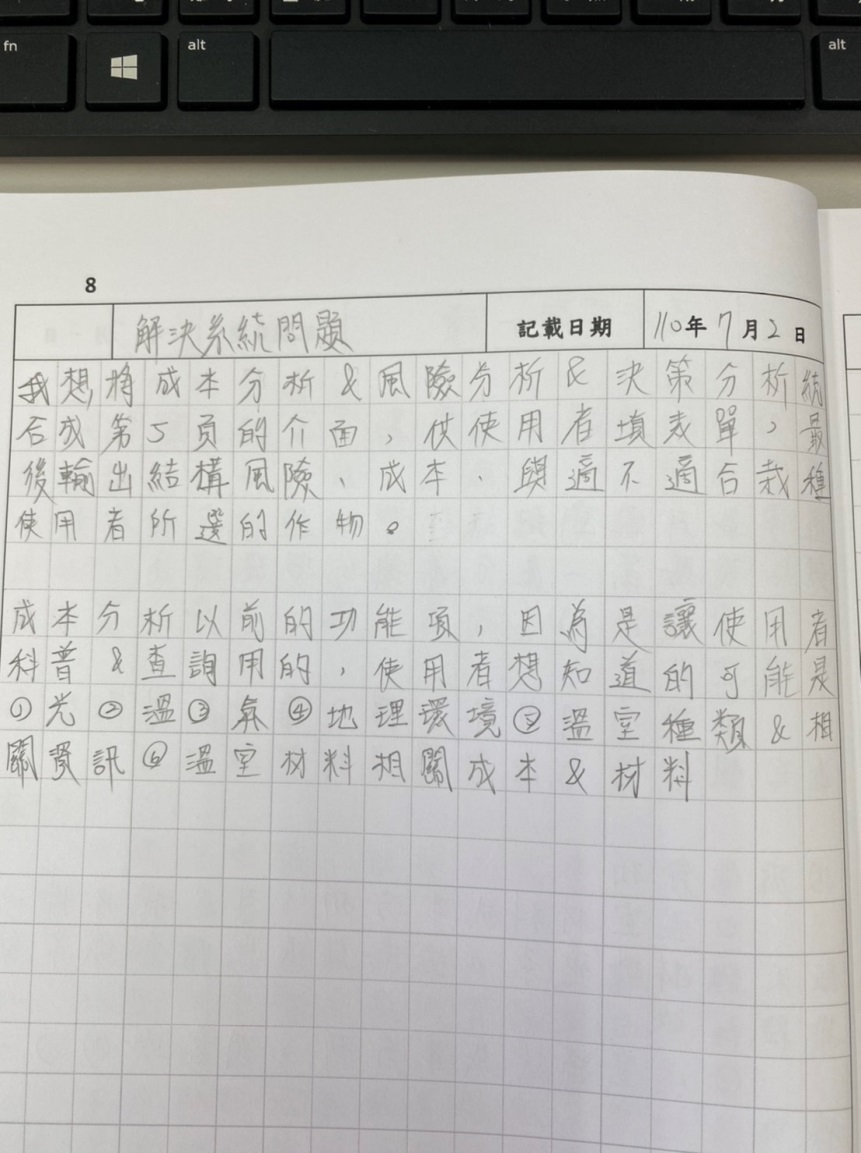 fn alt alt
8
解決系統問題 記載日期 110年7月2日
我想將成本分析&風險分析&決策分析統
合成第5頁的介面，供使用者填表單，最
後輸出結構風險、成本、與適不適合栽種
使用者所選的作物。
成本分析以前的功能項，因為是讓使用者
科普&查詢用的，使用者想知道的可能是
①光②溫③氣④地理環境⑤溫室種類&相
關資訊⑥溫室材料相關成本&材料